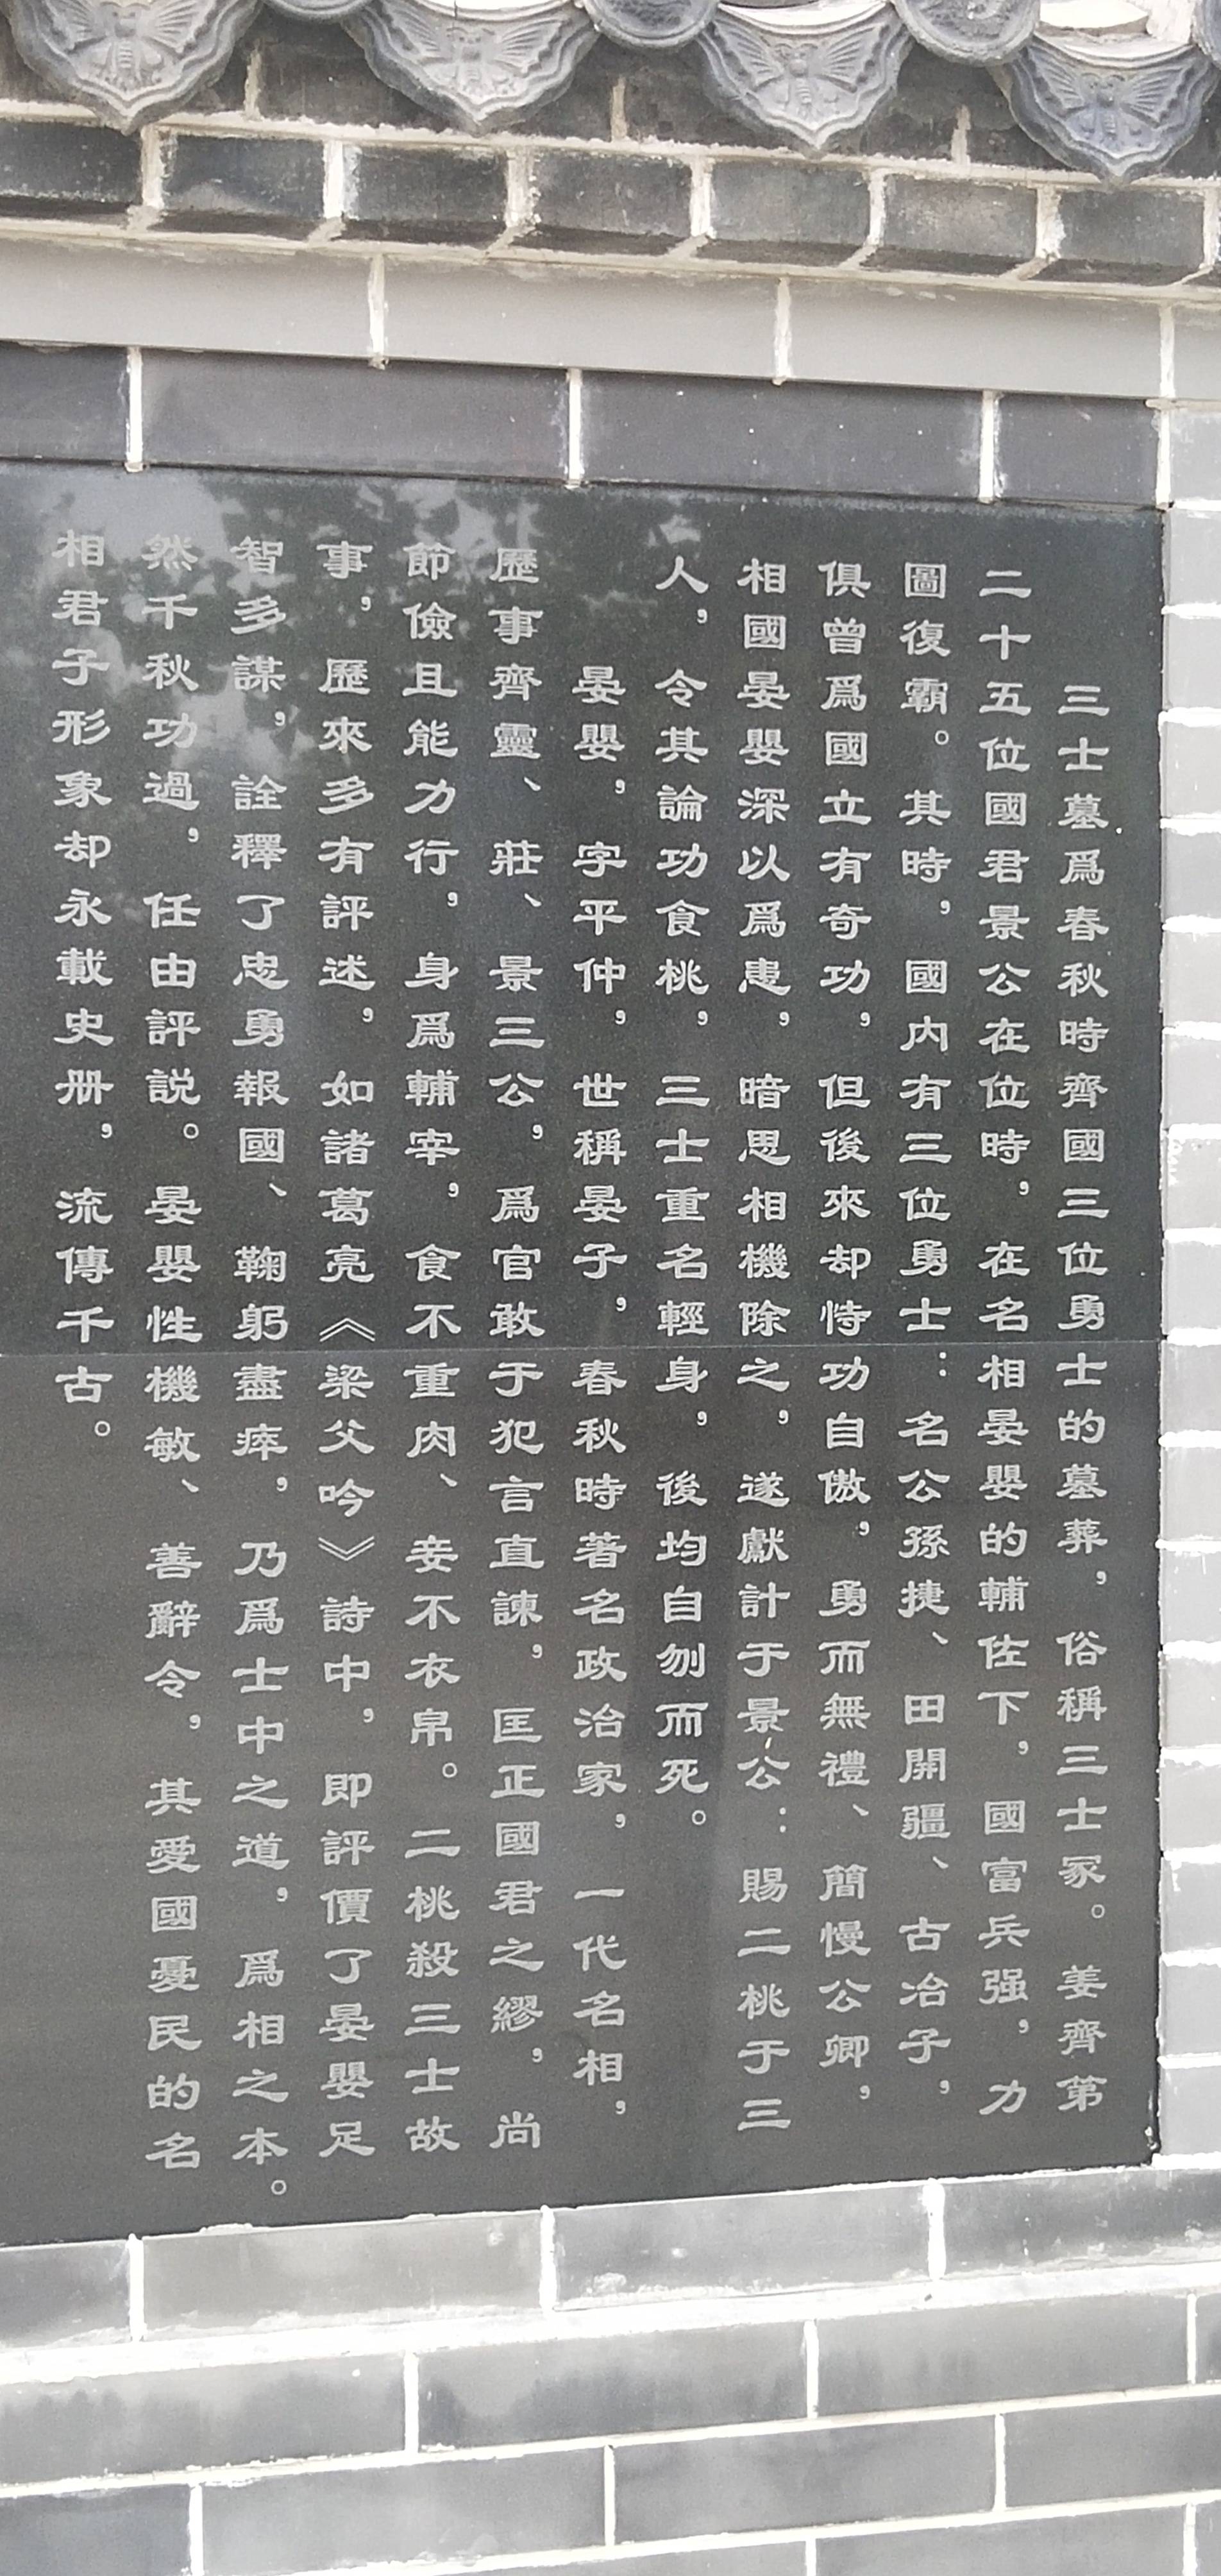 三士墓爲春秋時齊國三位勇士的墓葬，俗稱三士冢。姜齊第
二十五位國君景公在位時，在名相晏嬰的輔佐下，國富兵强，力
圖復霸。其時，國内有三位勇士：名公孫捷、田開疆、古冶子，
俱曾爲國立有奇功，但後來却恃功自傲，勇而無禮、簡慢公卿，
相國晏嬰深以爲患，暗思相機除之，遂獻計于景公：賜二桃于三
人，令其論功食桃，三士重名輕身，後均自刎而死。
晏嬰，字平仲，世稱晏子，春秋時著名政治家，一代名相，
歷事齊靈、莊、景三公，爲官敢于犯言直諫，匡正國君之繆，尚
節儉且能力行，身爲輔宰，食不重肉、妾不衣帛。二桃殺三士故
事，歷來多有評述，如諸葛亮《梁父吟》詩中，即評價了晏嬰足
智多謀，詮釋了忠勇報國、鞠躬盡瘁，乃爲士中之道，爲相之本。
然千秋功過，任由評説。晏嬰性機敏、善辭令，其愛國憂民的名
相君子形象却永載史册，流傳千古。